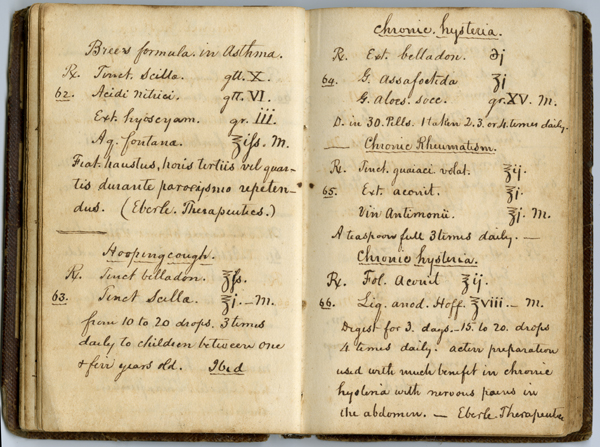 Brees formula in Asthma.
Rx. Tinct Scilla. gtt. X.
62. Acidi Nitrici. gtt. VI.
Ext. hyoscyam. gr. iii.
Aq. fontana. ℥iſs. M.
Fiat haustus, horis tertiis vel quar-
tis durante paroxysmo repeten-
dus. (Eberle. Therapeutics.)
Hoopingcough.
Rx. Tinct belladon. ℥ſs.
63. Tinct Scilla. ℥j. – M.
from 10 to 20 drops. 3 times
daily to children between one
& five years old. Ibid
Chronic hysteria.
Rx. Ext. belladon. ℈j
64. G. Assafoetida ʒj
G. Aloes. socc. gr. XV. M.
D. in 30. Pills. 1 taken 2. 3. or 4 times daily.
Chronic Rheumatism.
Rx. Tinct. guaiaci volat. ℥ij.
65. Ext. aconit. ʒj.
Vin Antimonii. ℥j. M.
A teaspoon full 3 times daily. –
Chronic hysteria.
Rx. Fol. Aconit ℥ij.
66. Liq. anod. Hoff. ℥viii. – M.
Digest for 3. days. – 15. to 20. drops
4 times daily. preparation
used with much benefit in chronic
hysteria with nervous pains in
the abdomen. – Eberle. Therapeutics